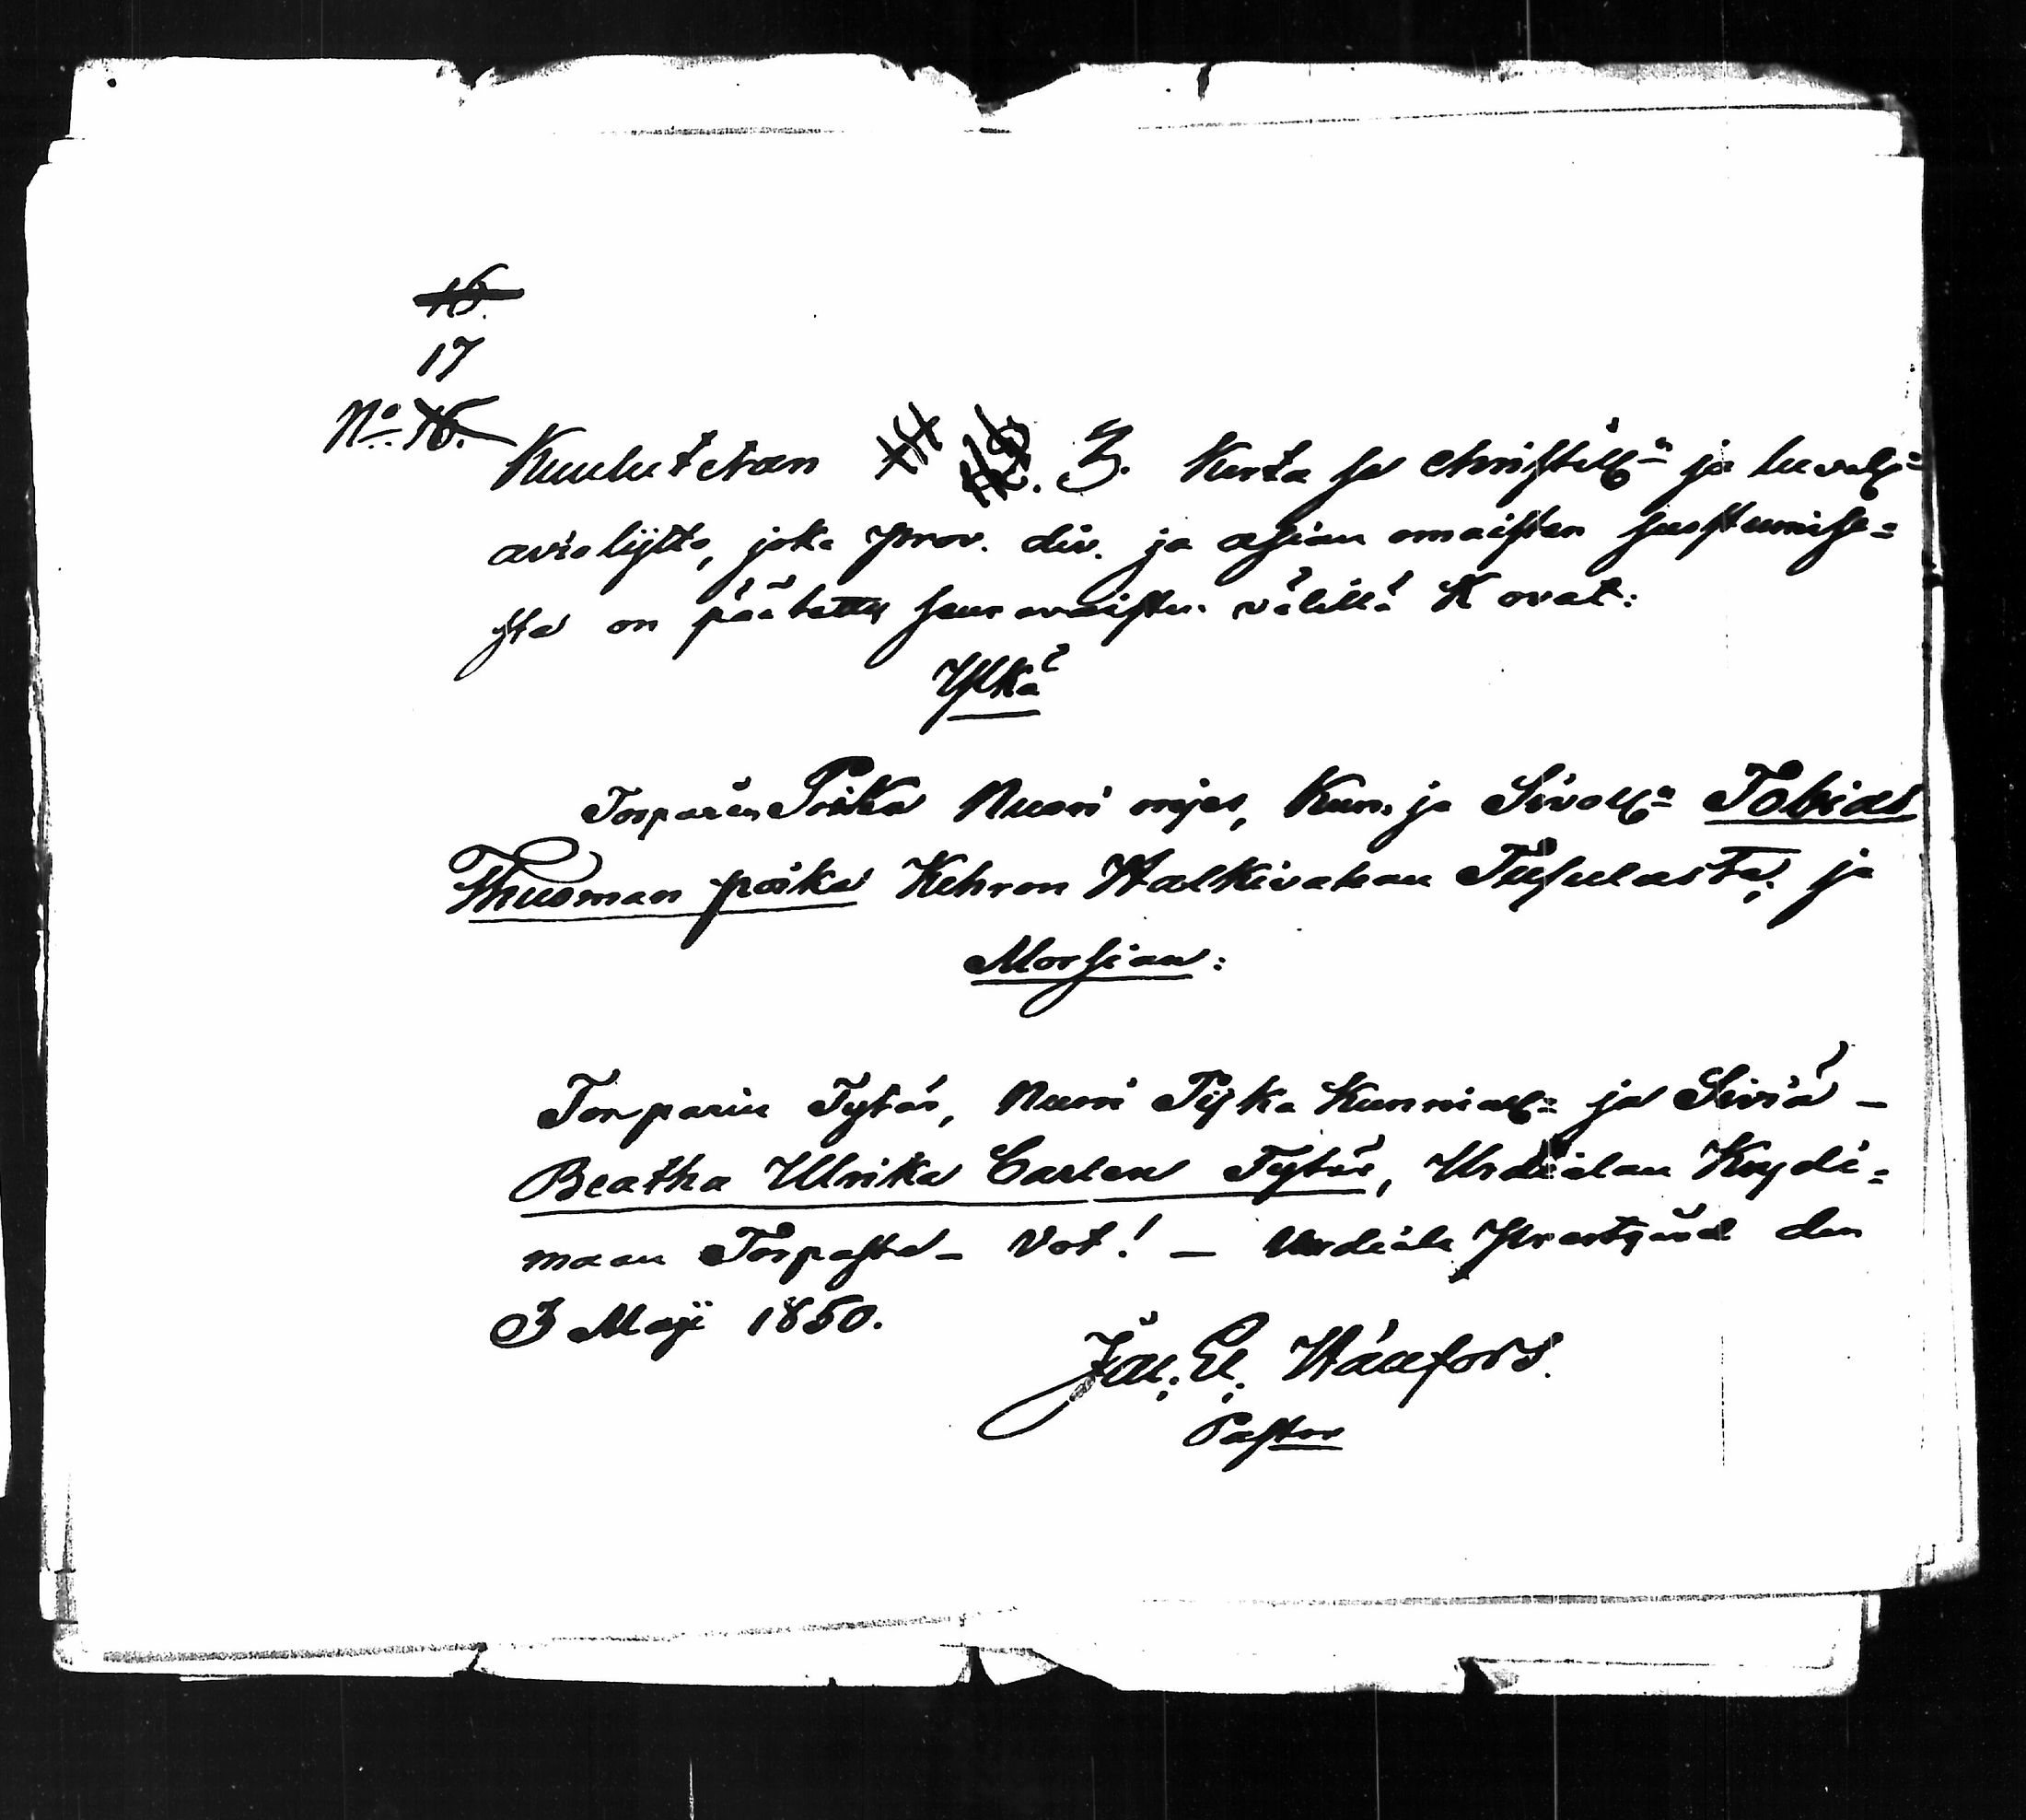 16.
17
No 16.
Kuulutetan 3. Kerta se christill: ja luval:
aviolijtto, joka prov. div. ja asian omaisten suostumise=
sta on päätetty seuravaisten välillä K ovat:
Ylkä
Torparin Poika Nuori mjes, Kun. ja Sivoll: Tobias
Thuoman poika Kehron Halkivahan Tusulasta; ja
Morsian:
Torparin Tytär, Nuori Pijka Kunniall: ja Siviä –
Beatha Ulrika Carlen Tytär, Urdialan Kydi=
maan Torpasta – Vot! – Urdiala Prestgård den
3 Maji 1850.
Pastor